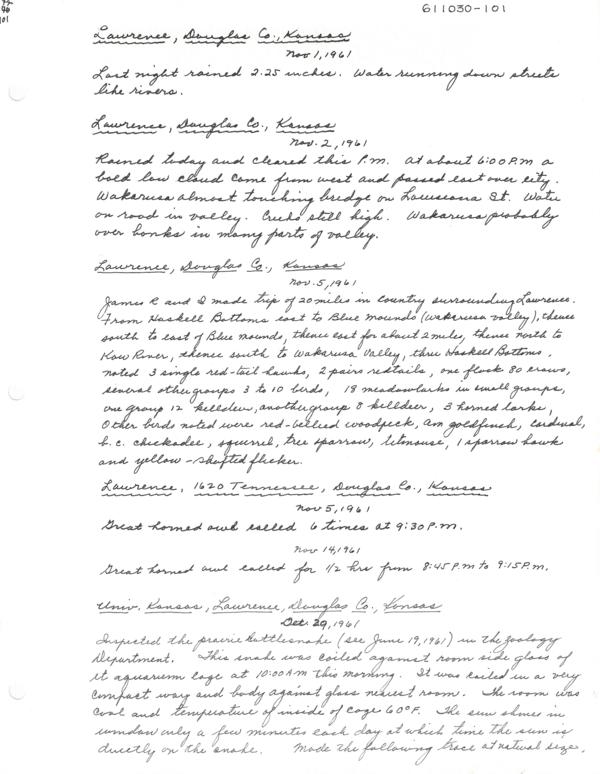 611030-101
Lawrence, Douglas Co., Kansas
Nov 1, 1961
Last night rained 2.25 inches. Water running down streets
like rivers.
Lawrence, Douglas Co., Kansas
Nov. 2, 1961
Rained today and cleared this P.M. At about 6:00 P.M a
bold low cloud come from west and passed east over city.
Wakarusa almost touching bridge on Louisiana St. Water
on road in valley. Creeks still high. Wakarusa probably
over banks in many parts of valley.
Lawrence, Douglas Co., Kansas
Nov. 5, 1961
James R and I made trip of 20 miles in country surrounding Lawrence.
From Haskell Bottoms east to Blue Mounds (Wakarusa valley), thence
south to east of Blue Mounds, thence east for about 2 miles, thence north to
Kaw River, thence south to Wakarusa Valley, thru Haskell Bottoms,
noted 3 single red-tail hawks, 2 pairs redtails, one flock 80 crows,
several other groups 3 to 10 birds, 18 meadowlarks in small groups,
one group 12 killdeer, another group 8 killdeer, 3 horned larks,
Other birds noted were red-bellied woodpeck, am goldfinch, cardinal,
b.c. chickadee, squirrel, tree sparrow, titmouse, 1 sparrow hawk
and yellow-shafted flicker.
Lawrence, 1620 Tennessee, Douglas Co., Kansas
Nov 5, 1961
Great horned owl called 6 times at 9:30 P.M.
Nov 14, 1961
Great horned owl called for 1/2 hrs from 8:45 P.M to 9:15 P.M.
Univ. Kansas, Lawrence, Douglas Co., Kansas
Oct. 29, 1961
Inspected the prairie Rattlesnake (see June 19, 1961) in the Zoology
Department. This snake was coiled against room side glass of
it aquarium cage at 10:00 AM this morning. It was coiled in a very
compact way and body against glass nearest room. The room was
cool and temperature of inside of cage 60°F. The sun shines in
window only a few minutes each day at which time the sun is
directly on the snake. Made the following trace at natural size.